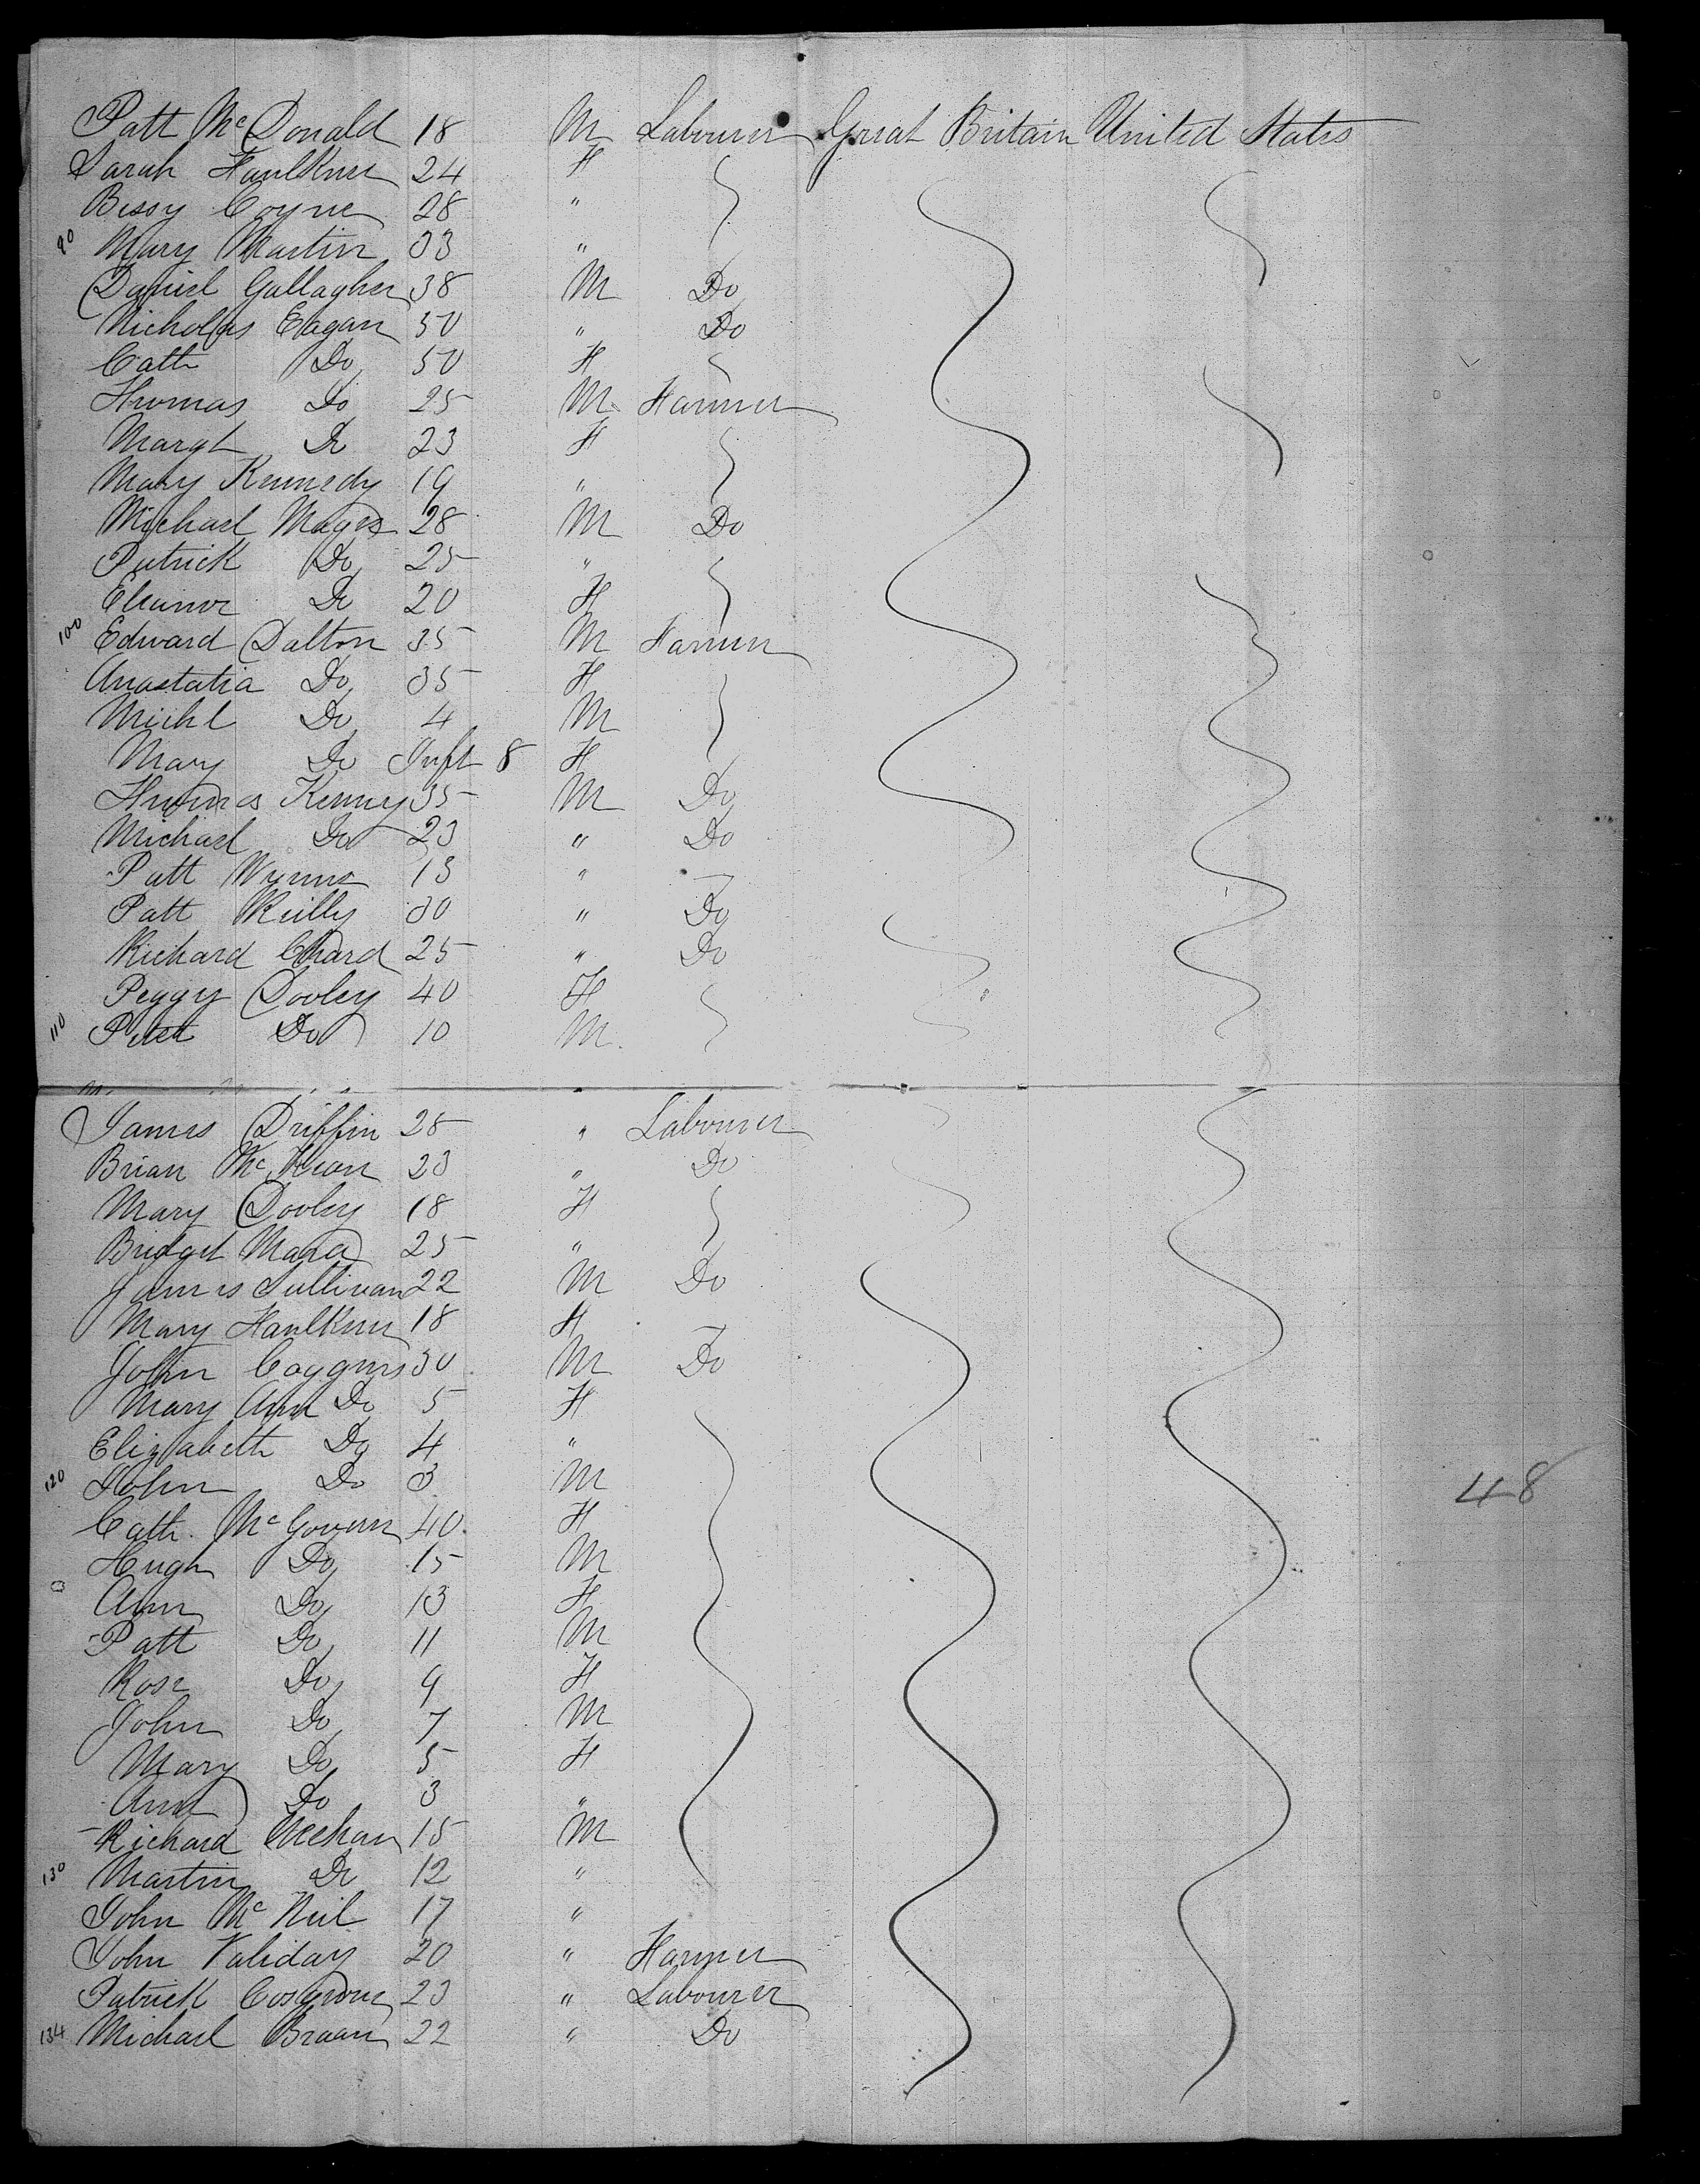 Patt McDonald 18 M Labourer Great Britain United States
Sarah Faulkner 24 F
Bessy Coyne 28 "
90 Mary Martin 33 "
Daniel Gallagher 38 M Do
Nicholas Eagan 50 " Do
Cath Do 50 F
Thomas Do 25 M Farmer
Margt Do 23 F
Mary Kennedy 19 "
Michael Mages 28 M Do
Patrick Do 25 "
Eleanor Do 20 F
100 Edward Dalton 35 M Farmer
Anastatia Do 35 F
Michl Do 4 M
Mary Do Inft 8 F
Thomas Kenney 35 M Do
Michael Do 23 " Do
Patt Wynne 13 "
Patt Reilly 30 " Do
Richard Chard 25 " Do
Peggy Dooley 40 F
110 Peter Do 10 M
James Driffin 25 " Labourer
Brian Mc 23 " Do
Mary Dooley 18 F
Bridget Mara 25 "
James Sullivan 22 M Do
Mary Faulkner 18 F
John Coggins 30 M Do
Mary Ann Do 5 F
Elizabeth Do 4 "
120 John Do 3 M
48
Cath. McGovern 40 F
Hugh Do 15 M
Ann Do 13 F
Patt Do 11 M
Rose Do 9 F
John Do 7 M
Mary Do 5 F
Ann Do 3 "
Richard Meehan 15 M
130 Martin Do 12 "
John McNeil 17 "
John Validay 20 " Farmer
Patrick Cosgrove 23 " Labourer
134 Michael Braan 22 " Do